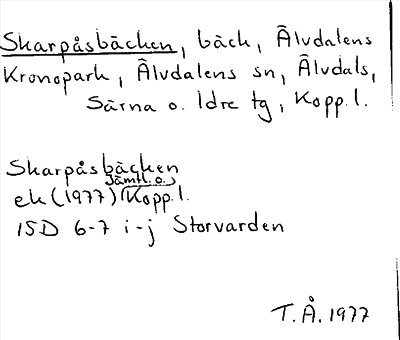 Skarpåsbäcken, bäck, Älvdalens
Kronopark, Älvdalens sn, Älvdals,
Särna o. Idre tg, Kopp.l.
Skarpåsbäcken
Jämtl. o.
ek (1977) Kopp.l.
15D 6-7 i-j Storvarden
T.Å. 1977